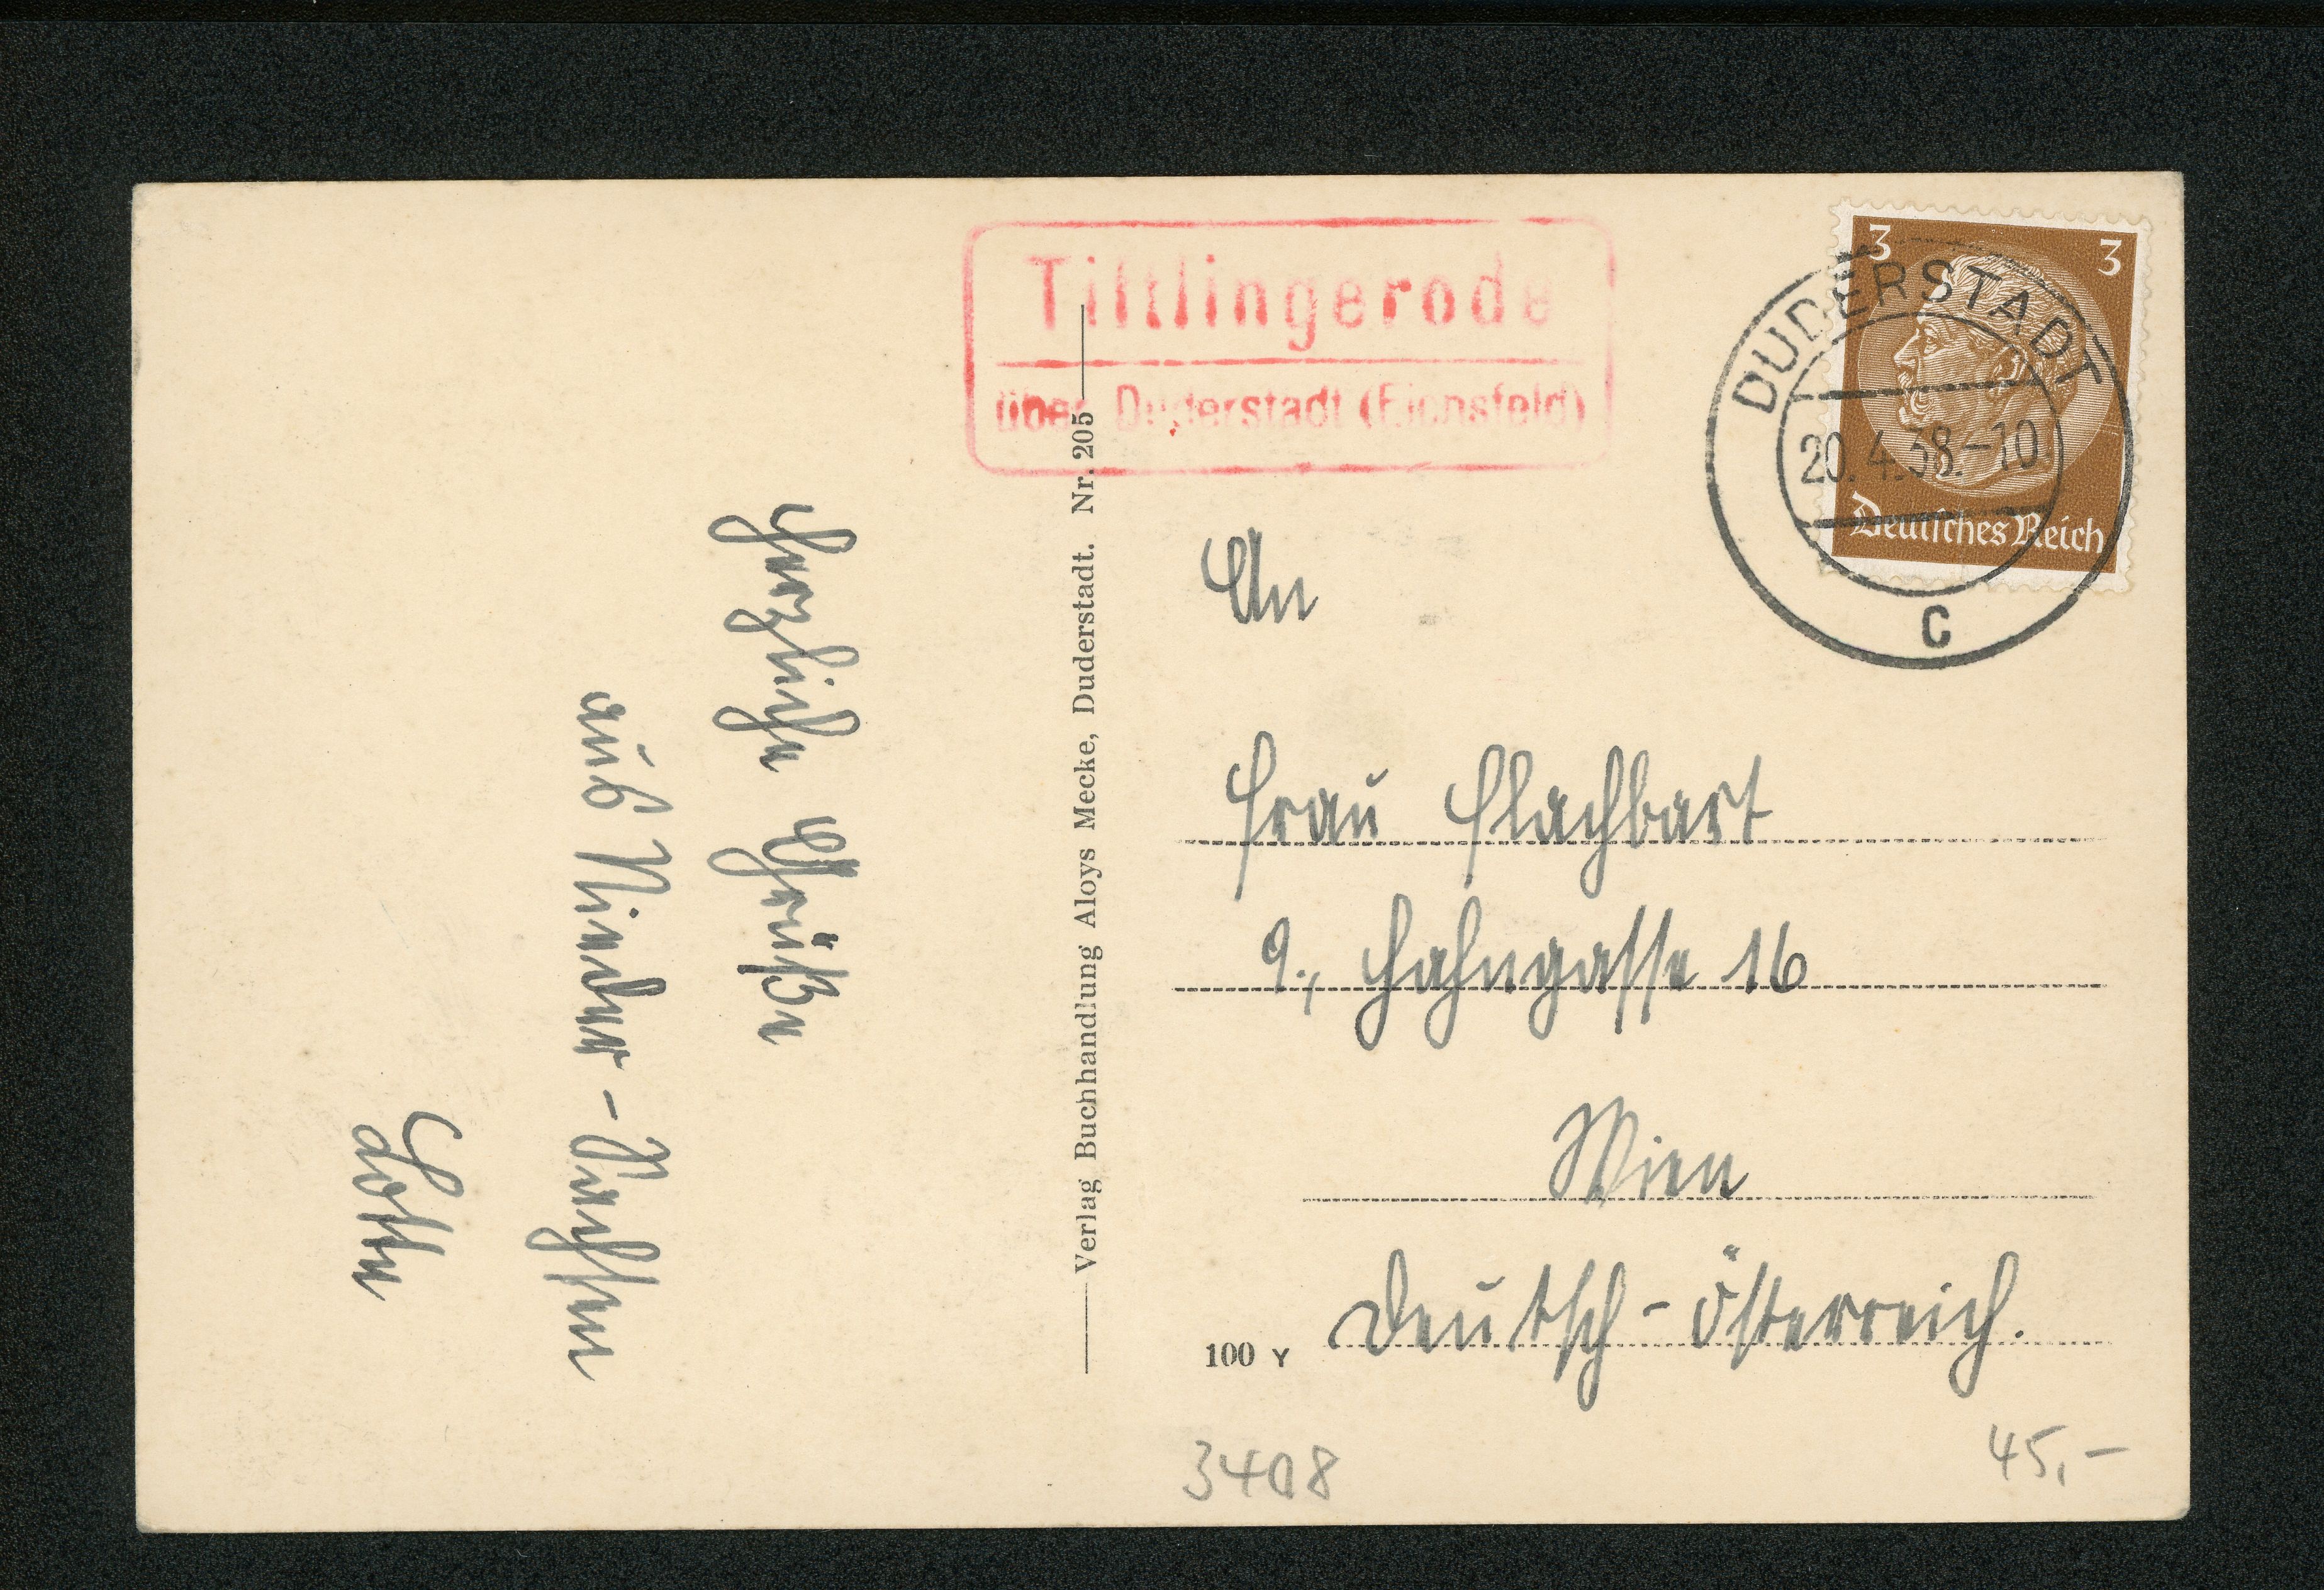 Tiftlingerode
über Duderstadt (Eichsfeld)
3 3
DUDERSTADT
20.4.38.-10
Deutsches Reich
c
Herzliche Grüße
aus Nieder-Sachsen
Lotte
Verlag Buchhandlung Aloys Mecke, Duderstadt. Nr. 205
An
Frau Flachbart
9., Hahngasse 16
Wien
Deutsch-Österreich.
100 Y
3408
45,-